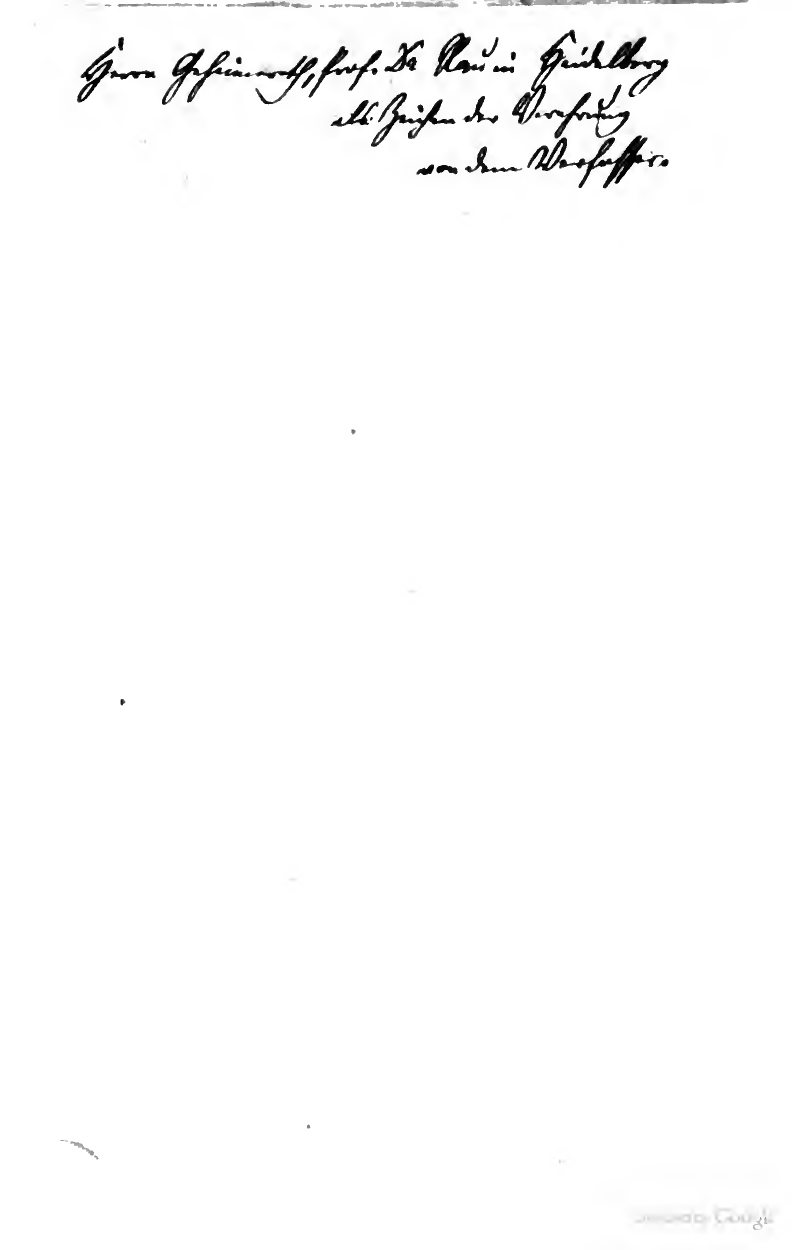 Herrn Geheimerath, Prof. Dr Rau in Heidelberg
als Zeichen der Verehrung
von dem Verfasser.
Google